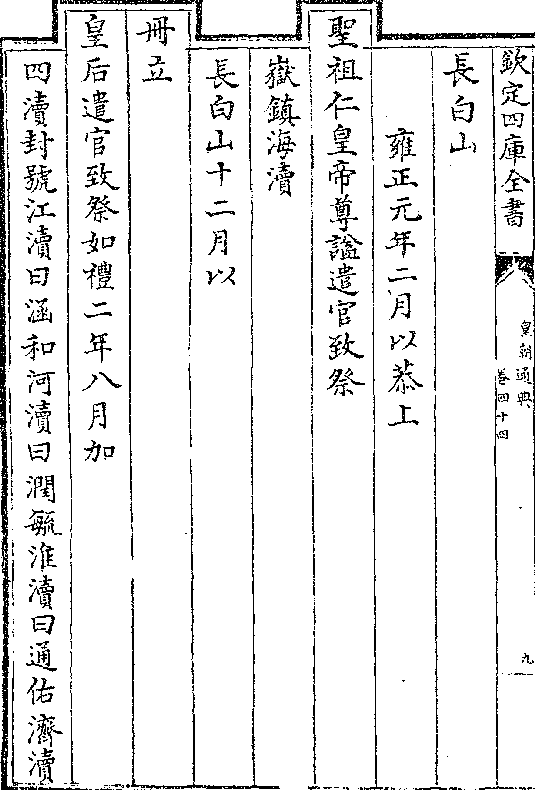 欽定四庫全書
皇朝通典
卷四十四
九
長白山
雍正元年二月以恭上
聖祖仁皇帝尊諡遣官致祭
嶽鎮海瀆
長白山十二月以
冊立
皇后遣官致祭如禮二年八月加
四瀆封號江瀆曰涵和河瀆曰潤毓淮瀆曰通佑濟瀆